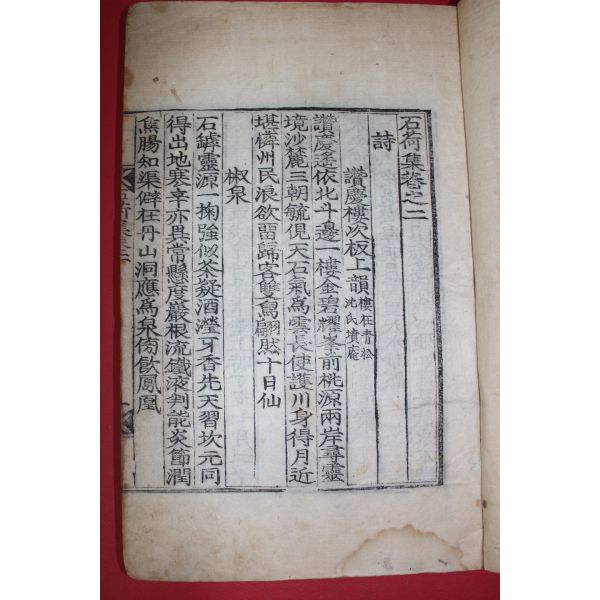 石荷集卷之二
詩
讚慶樓次板上韻 樓在靑松
沈氏墳庵
讚慶遙依北斗邊一樓金碧耀峯前桃源兩岸尋靈
境沙麓三朝毓俔天石氣爲雲長使護川身得月近
堪憐州民浪欲留歸客雙舃翩然十日仙
椒泉
石罅靈源一掬强似茶疑酒瀅牙香先天習坎元同
得出地寒幸亦異常懸度巖根流鐵液判能炎節潤
焦腸知渠僻在丹山洞應爲泉傍飮鳳凰